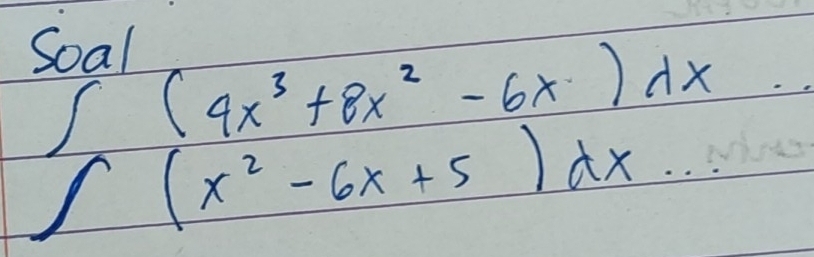 Soal
∫ (4x³ + 8x² - 6x) dx ...
∫ (x² - 6x + 5) dx ...